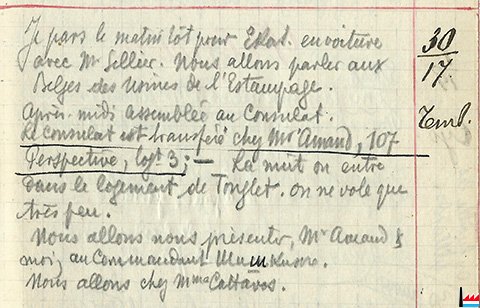 Je pars le matin tôt pour Ekat. en voiture
avec Mr Sellier. Nous allons parler aux
Belges des Usines de l'Estampage.
Après-midi assemblée au Consulat.
Le Consulat est transféré chez Mr Amand, 107
Perspective, logt 3; — La nuit on entre
dans le logement de Tonglet. on ne vole que
très peu.
Nous allons nous présenter, Mr Amand &
moi, au Commandant
Nous allons chez Mme Cattavos.
30
17
Temb.